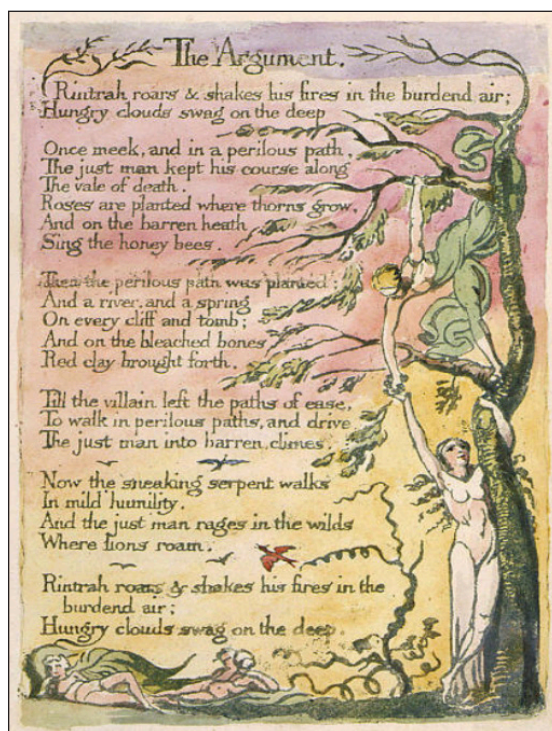 The Argument.
Rintrah roars & shakes his fires in the burdend air;
Hungry clouds swag on the deep
Once meek, and in a perilous path,
The just man kept his course along
The vale of death.
Roses are planted where thorns grow,
And on the barren heath
Sing the honey bees.
Then the perilous path was planted:
And a river, and a spring
On every cliff and tomb;
And on the bleached bones
Red clay brought forth.
Till the villain left the paths of ease,
To walk in perilous paths, and drive
The just man into barren climes
Now the sneaking serpent walks
In mild humility.
And the just man rages in the wilds
Where lions roam.
Rintrah roars & shakes his fires in the
burdend air;
Hungry clouds swag on the deep.